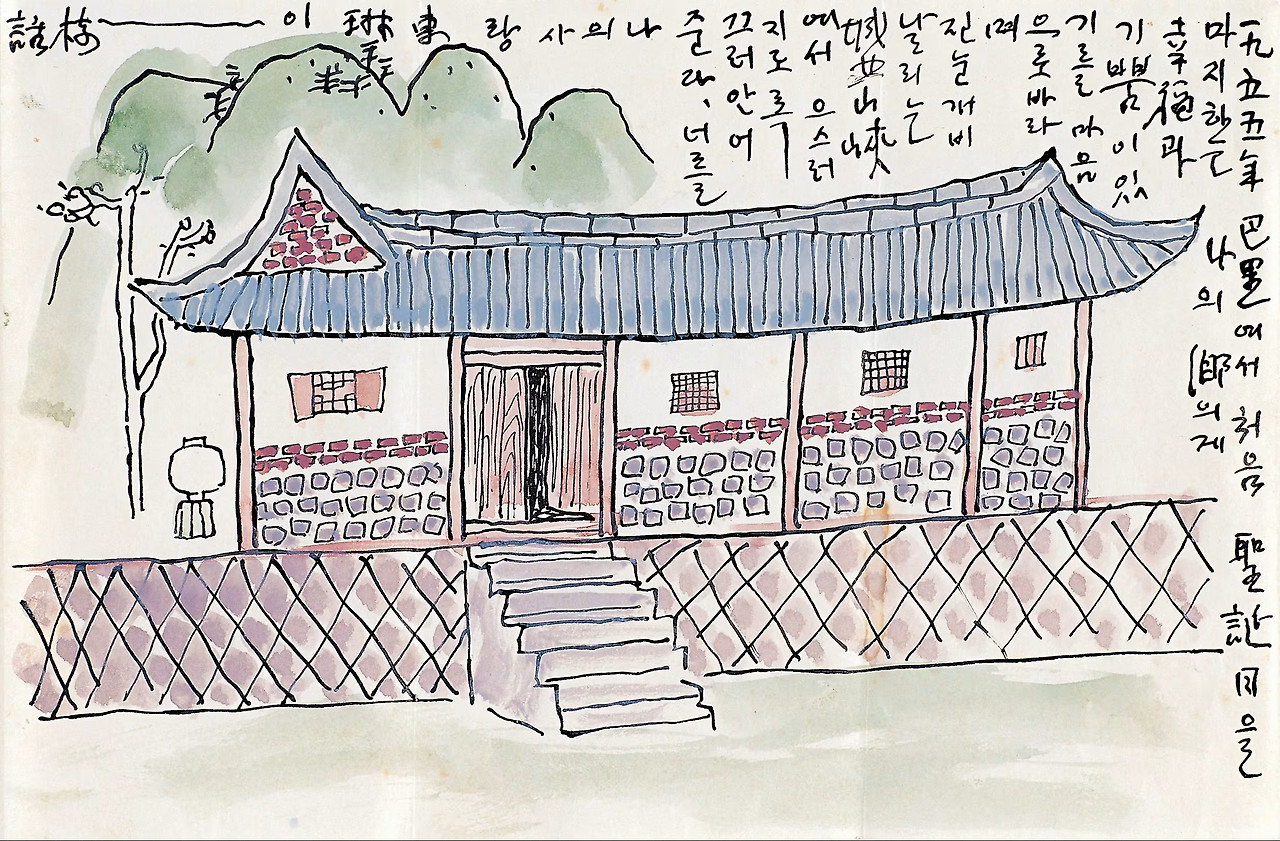 一九五五年 巴里에서 처음 聖誕日을
마지한는 나의 鄕의게
幸福과
기쁨이 있
기를 마음
으로 바라
며
진눈개비
날리는
城北山峽
에서 으스러
지도록
끄러안어
준다. 너를
나의 사랑 東琳이 —— 樹話